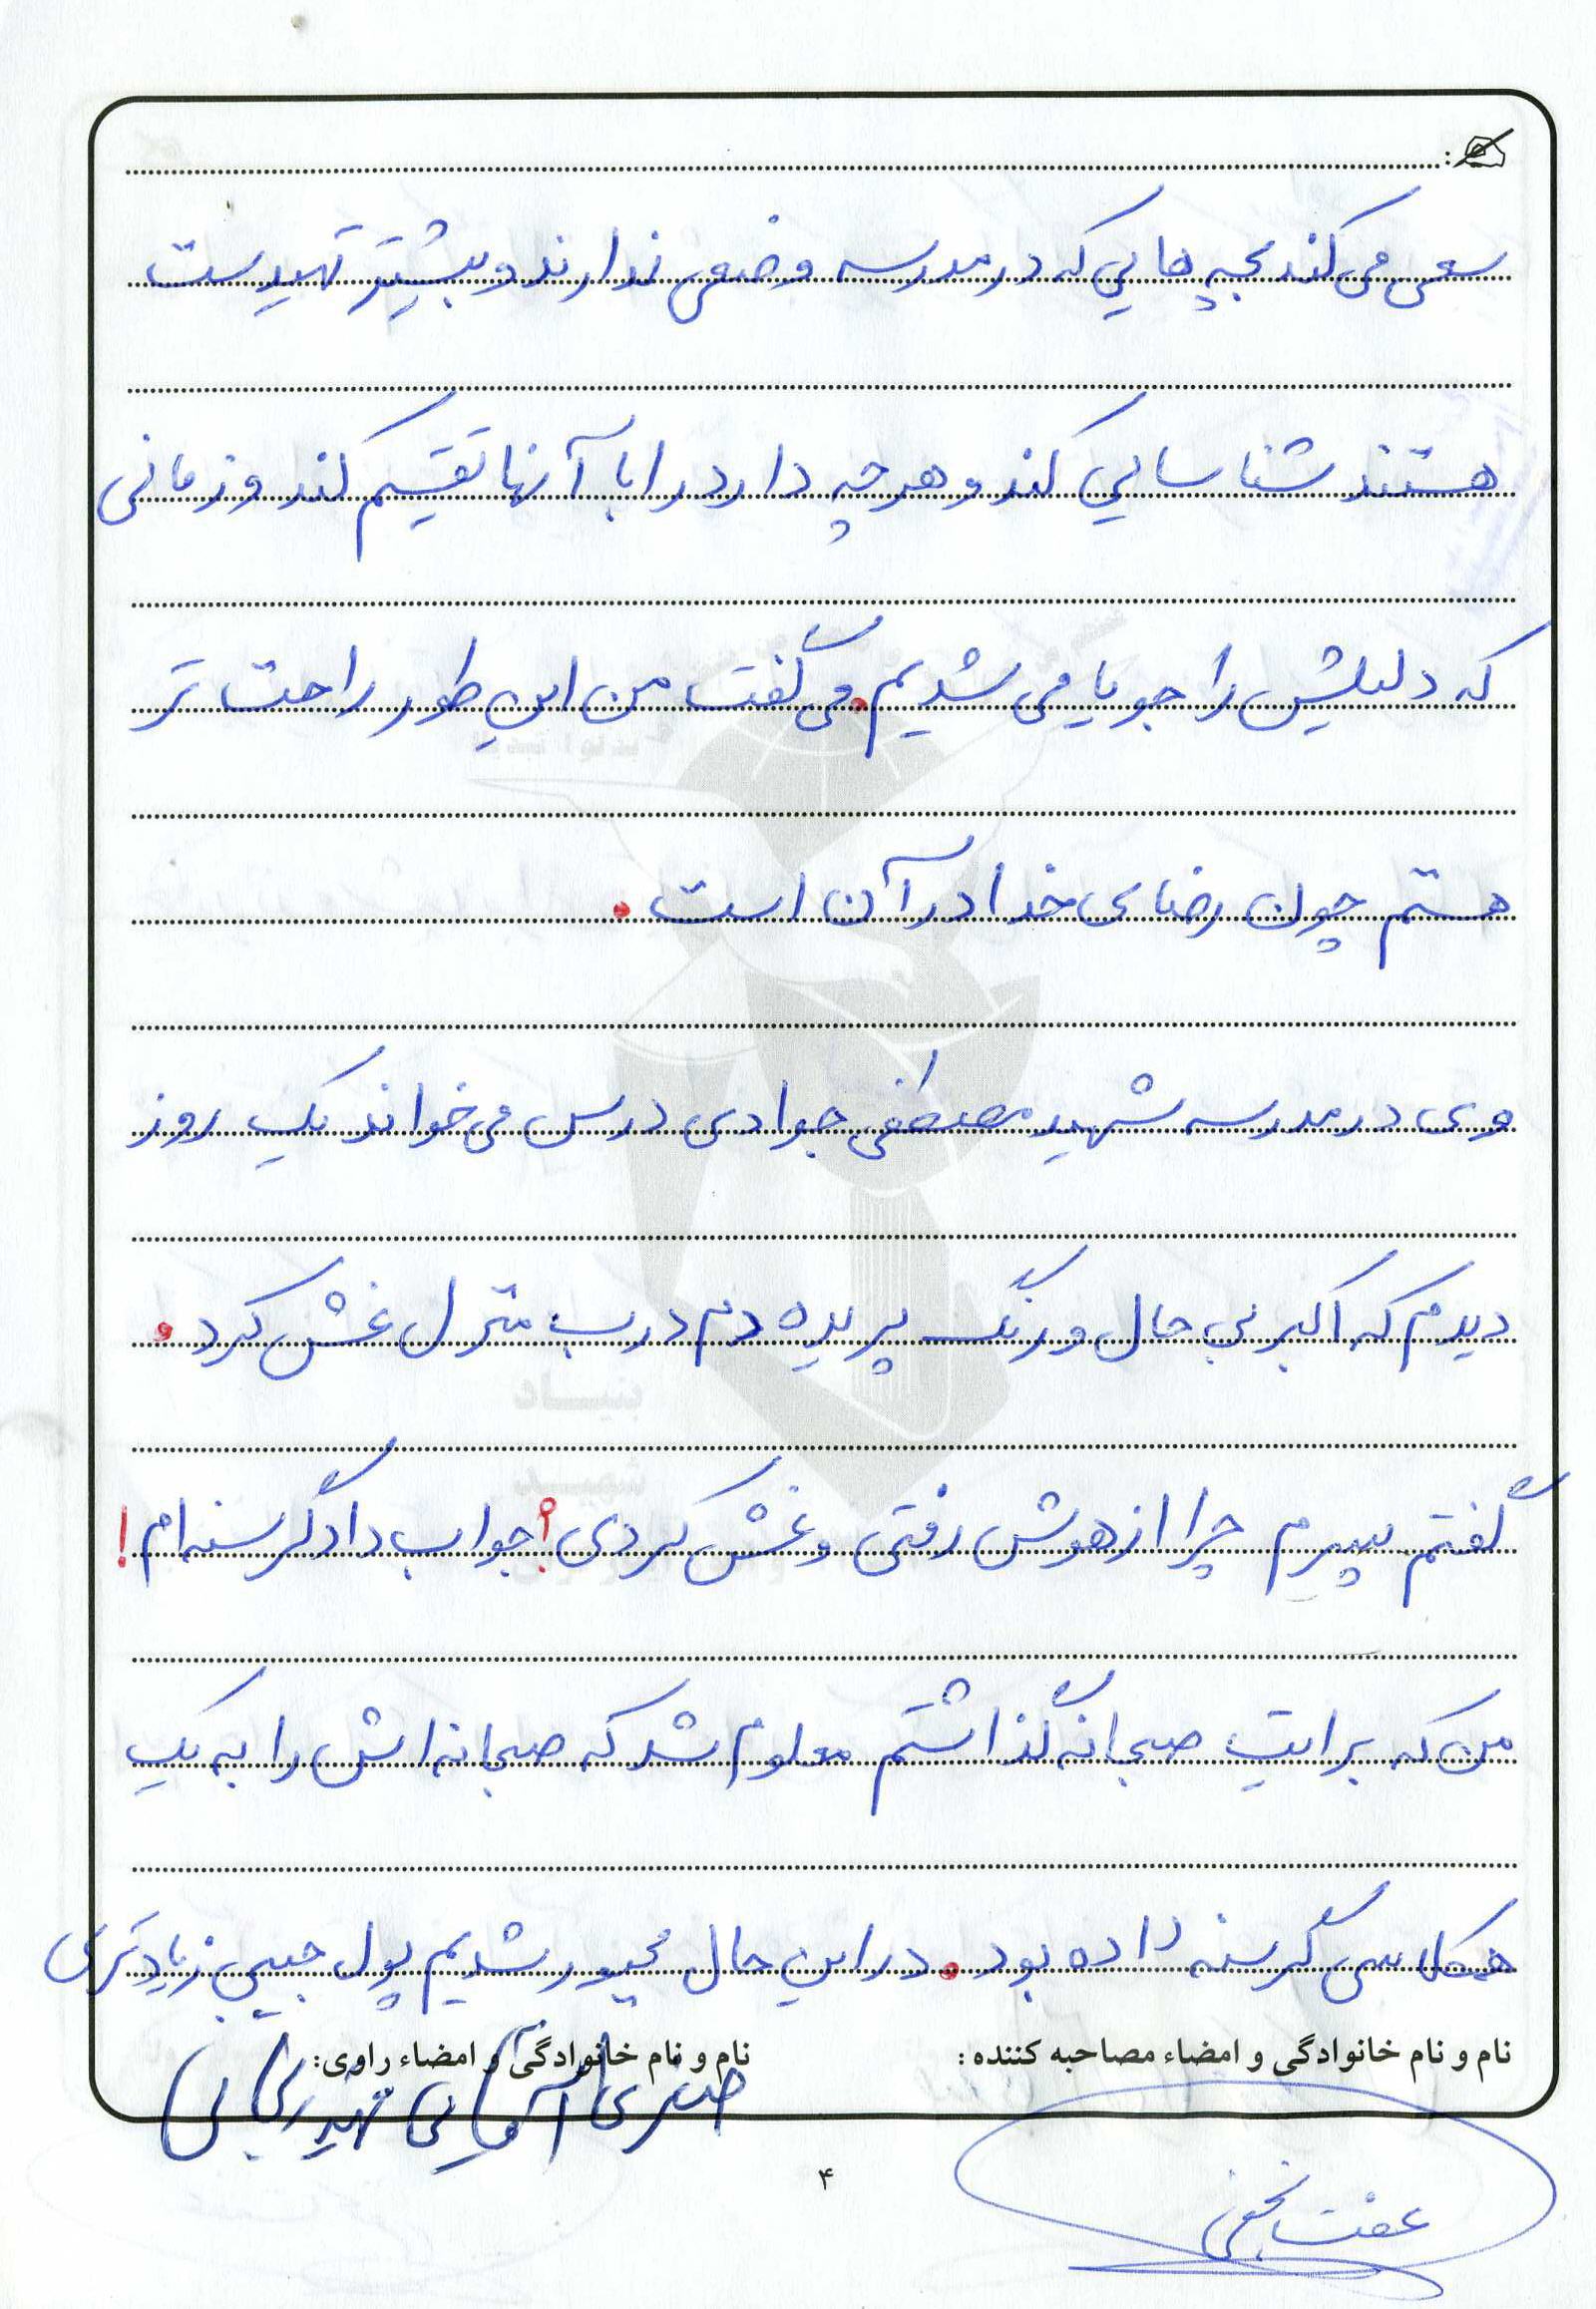 سعی می کند بچه هایی که در مدرسه وضعی ندارند و بیشتر تهیدست
هستند شناسایی کند و هر چه دارد را با آنها تقسیم کند و زمانی
که دلیلش را جویا می شدیم. می گفت من این طور راحت تر
هستم چون رضای خدا در آن است.
وی در مدرسه شهید مصطفی جوادی درس می خواند یک روز
دیدم که اکبر بی حال و رنگ پریده دم درب منزل غش کرد،
گفتم پسرم چرا از هوش رفتی و غش کردی؟ جواب داد گرسنه ام!
من که برایت صبحانه گذاشتم معلوم شد که صبحانه اش را به یک
همکلاسی گرسنه داده بود. در این حال مجبور شدیم پول جیبی زیادتری
نام و نام خانوادگی و امضاء مصاحبه کننده: نام و نام خانوادگی و امضاء راوی:
صغری
۴
عفت نجفی
بنیاد